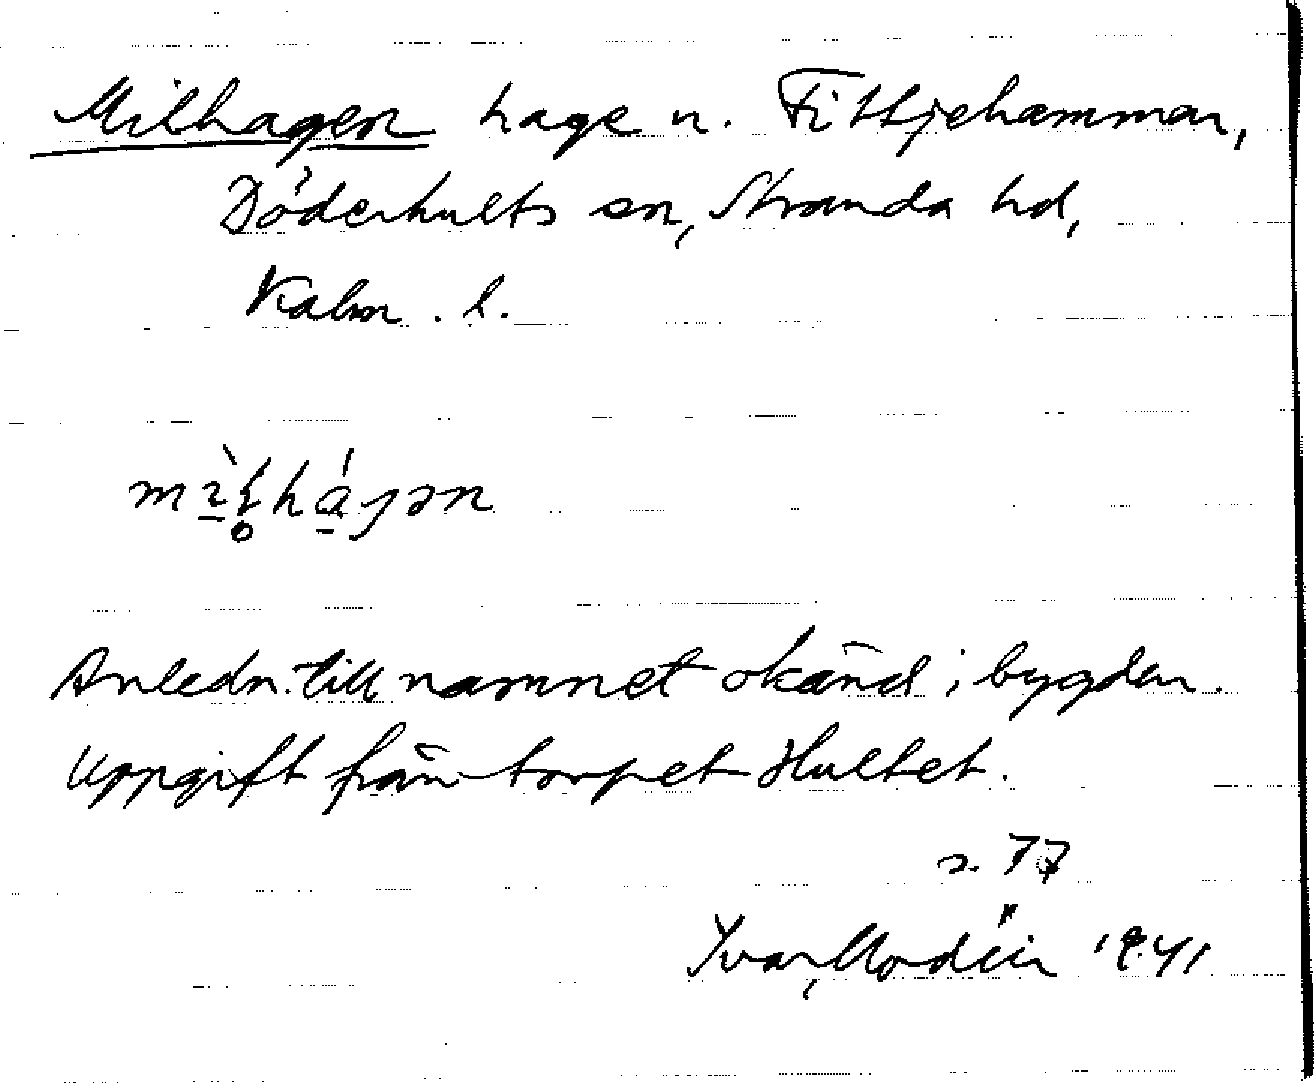 Milhagen hage n. Fittjehammar,
Döderhults sn, Stranda hd,
Kalm. l.
Anledn. till namnet okänd i bygden.
Uppgift från torpet Hultet.
s. 77
Yvar Modéin 1941